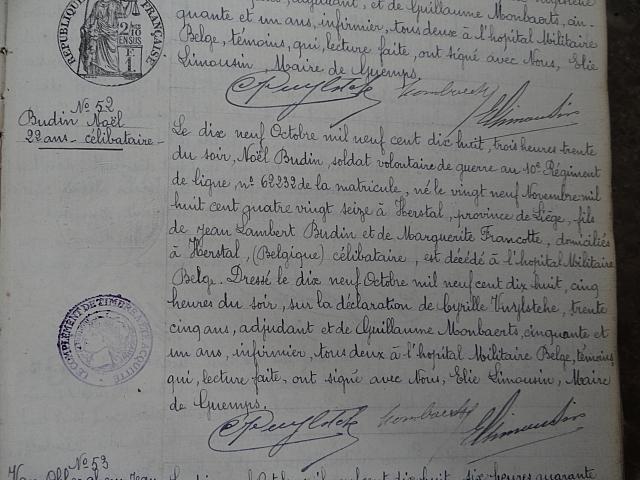 RÉPUBLIQUE FRANÇAISE
2 10es
EN SUS
adjudant, et de Guillaume Monbaerts, cin-
quante et un ans, infirmier, tous deux à l'hopital Militaire
Belge, témoins, qui, lecture faite, ont signé avec Nous, Elie
Limousin, Maire de Guemps.
ELimousin
N° 52
Budin Noël
22 ans - célibataire -
Le dix neuf Octobre mil neuf cent dix huit, trois heures trente
du soir, Noël Budin, soldat volontaire de guerre au 10e Régiment
de ligne, n° 62232 de la matricule, né le vingt neuf Novembre mil
huit cent quatre vingt seize à Herstal, province de Liège, fils
de Jean Lambert Budin et de Marguerite Francotte, domiciliés
à Herstal, (Belgique) célibataire, est décédé à l'hopital Militaire
Belge. Dressé le dix neuf Octobre mil neuf cent dix huit, cinq
heures du soir, sur la déclaration de Cyrille Kuylstehe, trente
cinq ans, adjudant et de Guillaume Monbaerts, cinquante et
un ans, infirmier, tous deux à l'hopital Militaire Belge, témoins
qui, lecture faite, ont signé avec Nous, Elie Limousin, Maire
de Guemps.
LE COMPLÉMENT DE TIMBRE A ÉTÉ ACQUITTÉ
ELimousin
N° 53
Jean
huit, six heures quarante